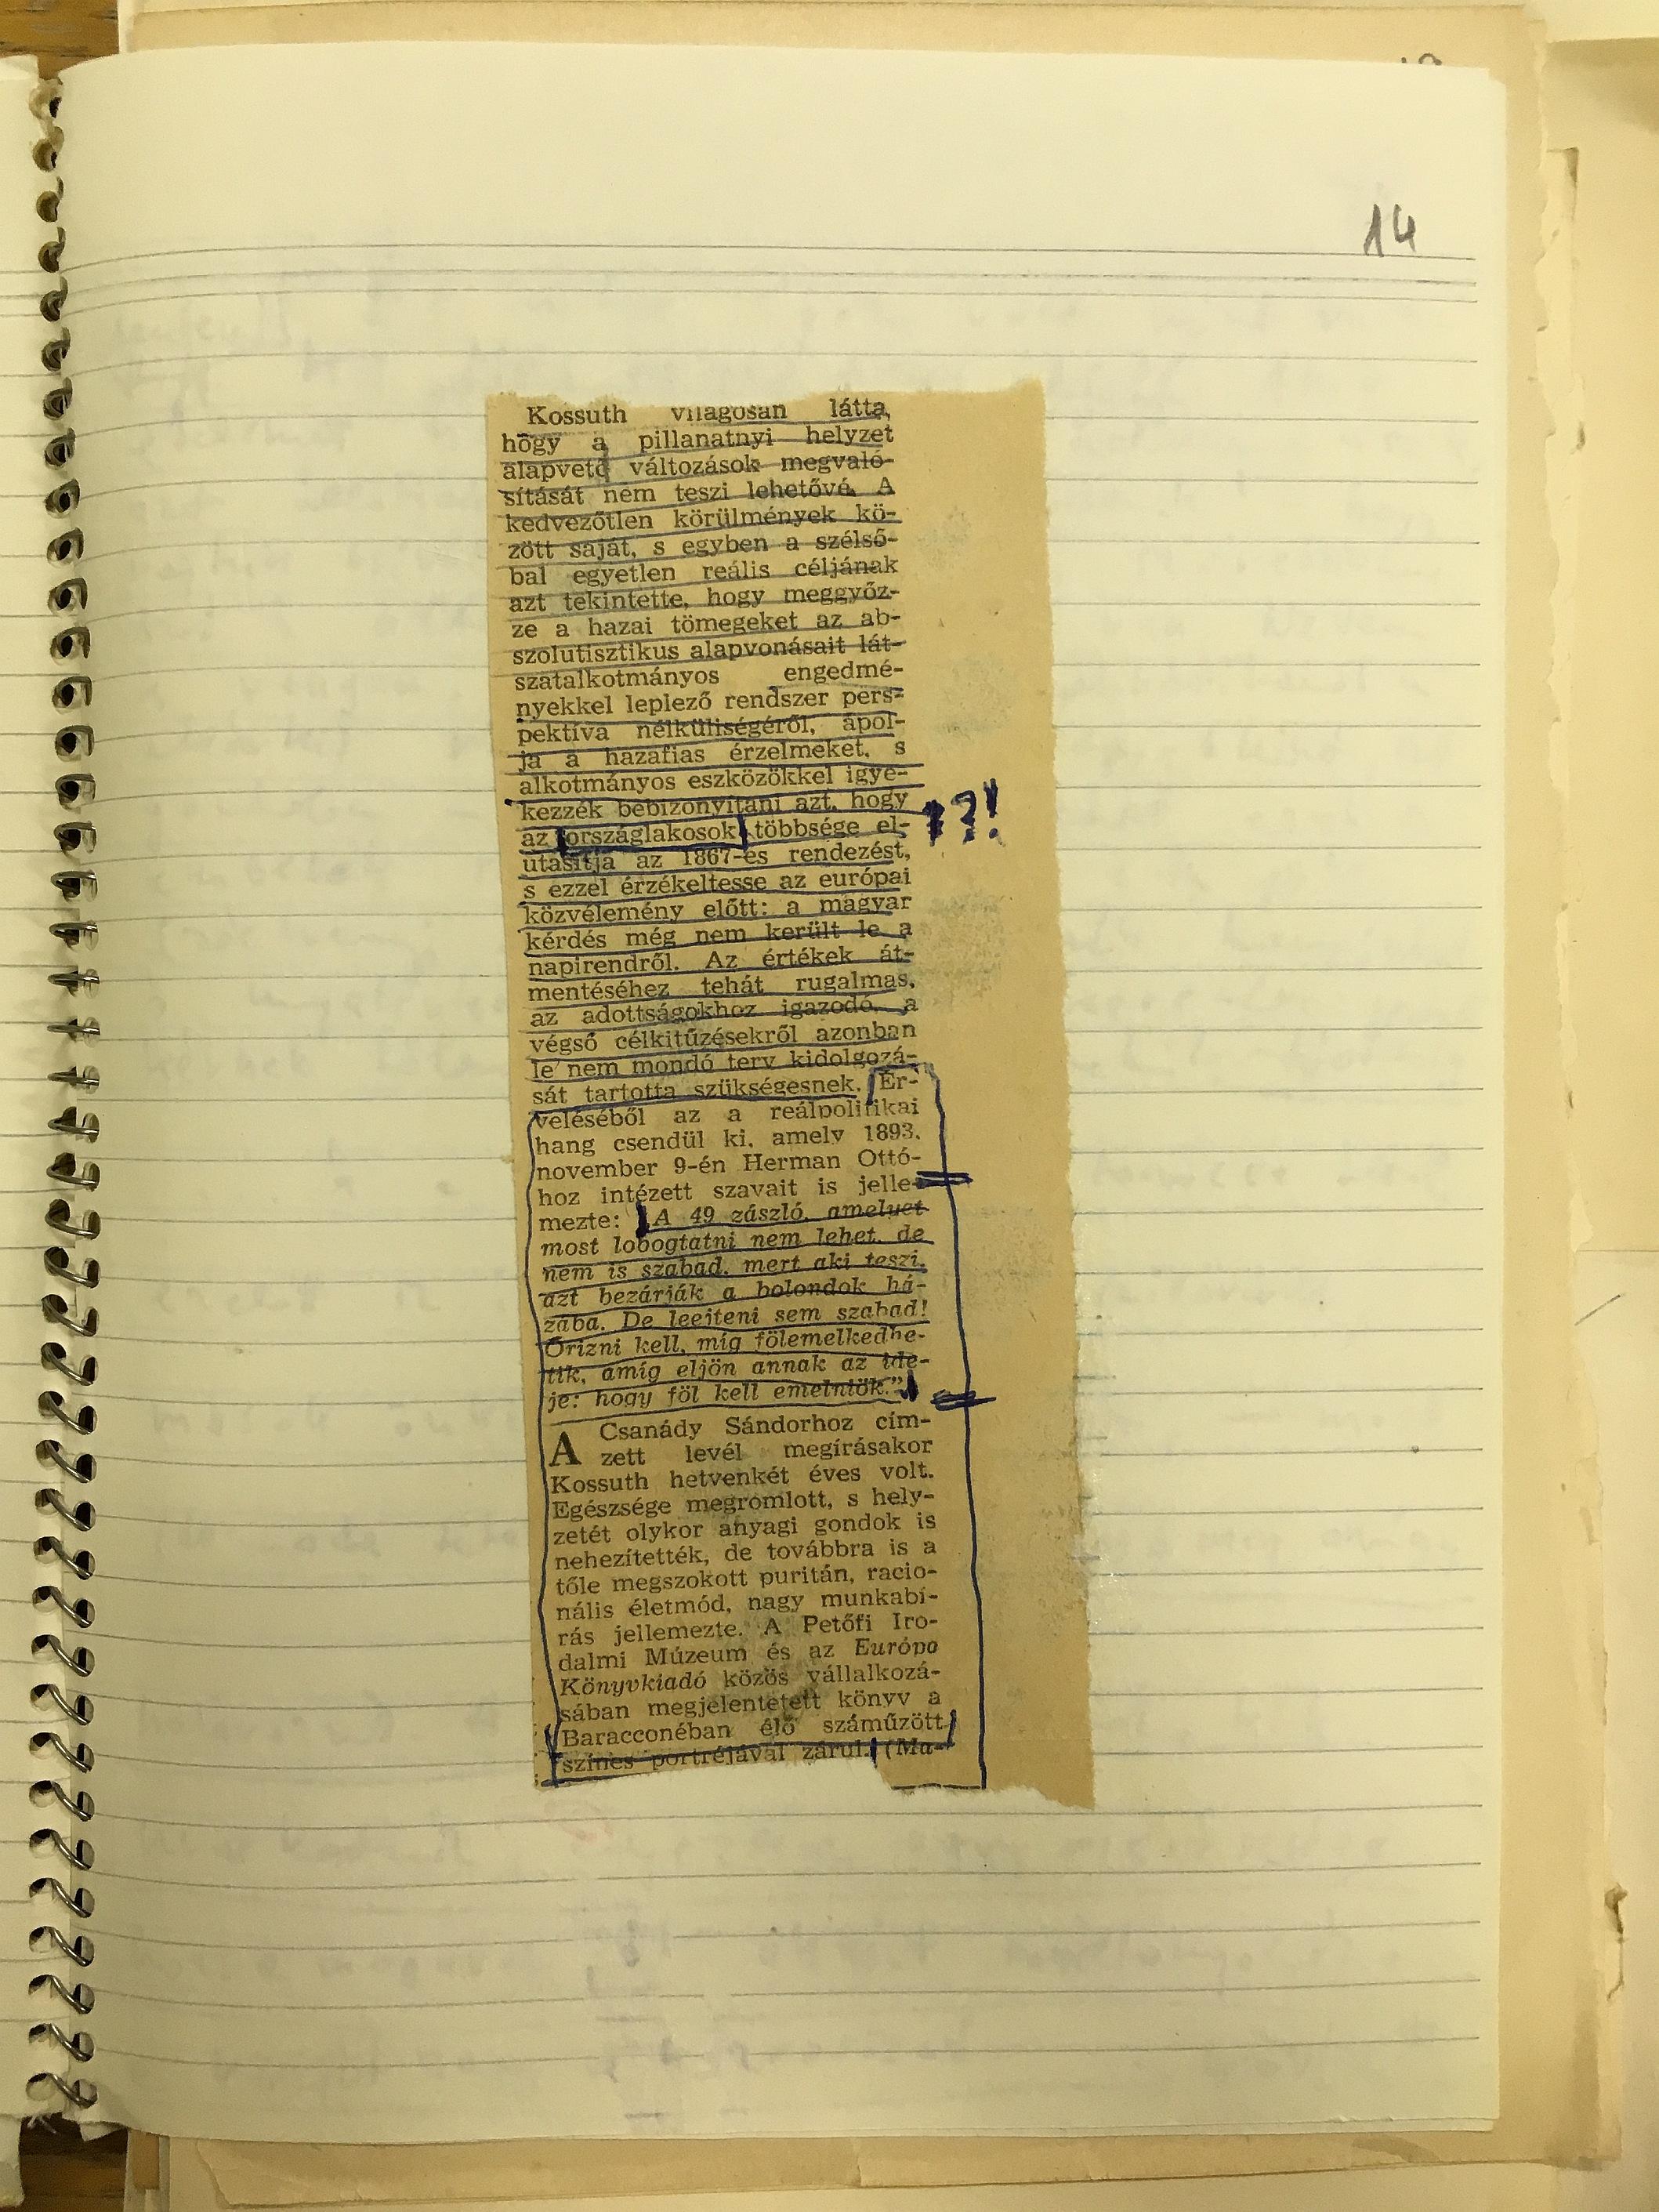 14
Kossuth világosan látta,
hogy a pillanatnyi helyzet
alapvető változások megvaló-
sítását nem teszi lehetővé. A
kedvezőtlen körülmények kö-
zött saját, s egyben a szélső-
bal egyetlen reális céljának
azt tekintette, hogy meggyőz-
ze a hazai tömegeket az ab-
szolutisztikus alapvonásait lát-
szatalkotmányos engedmé-
nyekkel leplező rendszer pers-
pektíva nélküliségéről, ápol-
ja a hazafias érzelmeket, s
alkotmányos eszközökkel igye-
kezzék bebizonyítani azt, hogy
az országlakosok többsége el- ?!
utasítja az 1867-es rendezést,
s ezzel érzékeltesse az európai
közvélemény előtt: a magyar
kérdés még nem került le a
napirendről. Az értékek át-
mentéséhez tehát rugalmas,
az adottságokhoz igazodó, a
végső célkitűzésekről azonban
le nem mondó terv kidolgozá-
sát tartotta szükségesnek. Ér-
veléséből az a reálpolitikai
hang csendül ki, amely 1893.
november 9-én Herman Ottó-
hoz intézett szavait is jelle-
mezte: A 49 zászló, amelyet
most lobogtatni nem lehet, de
nem is szabad, mert aki teszi,
azt bezárják a bolondok há-
zába. De leejteni sem szabad!
Őrizni kell, míg fölemelkedhe-
tik, amíg eljön annak az ide-
je: hogy föl kell emelniök."
A Csanády Sándorhoz cím-
zett levél megírásakor
Kossuth hetvenkét éves volt.
Egészsége megromlott, s hely-
zetét olykor anyagi gondok is
nehezítették, de továbbra is a
tőle megszokott puritán, racio-
nális életmód, nagy munkabí-
rás jellemezte. A Petőfi Iro-
dalmi Múzeum és az Európa
Könyvkiadó közös vállalkozá-
sában megjelentetett könyv a
Baracconéban élő száműzött
színes portréjával zárul. (Ma-